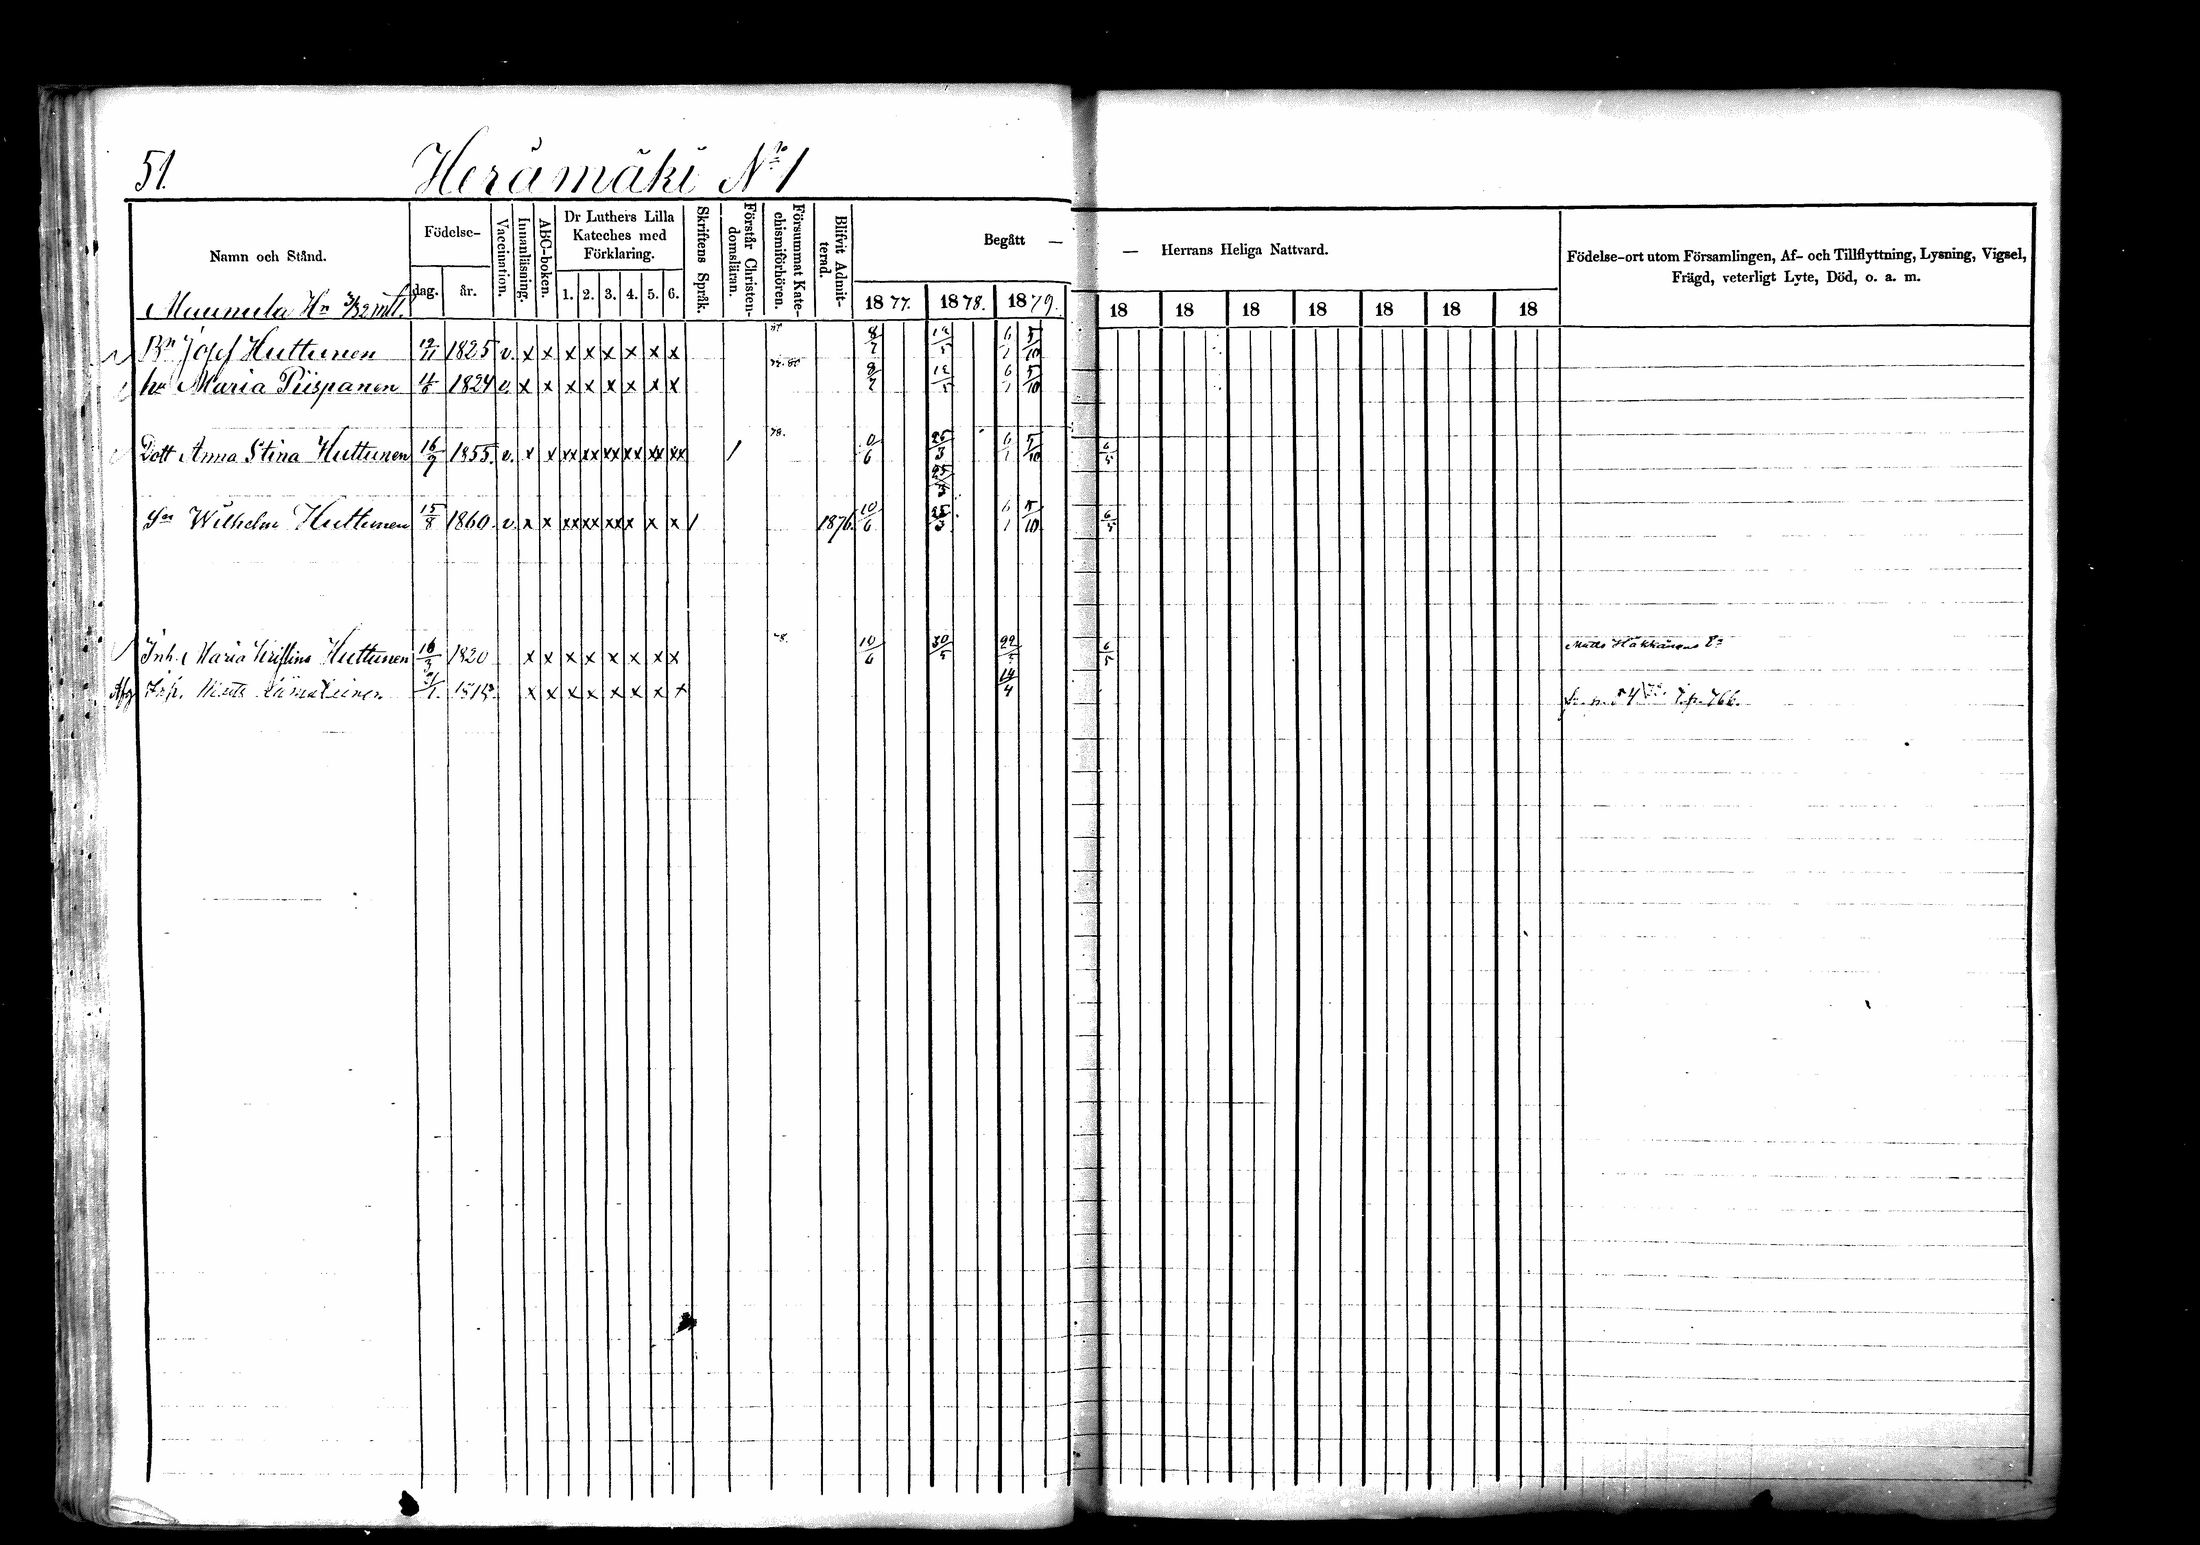 51. Herämäki No 1
Namn och Stånd.
Födelse-
dag. år.
Vaccination.
Innanläsning.
ABC-boken.
Dr Luthers Lilla
Kateches med
Förklaring.
1. 2. 3. 4. 5. 6.
Skriftens Språk.
Förstår Christen-
domsläran.
Försummat Kate-
chismiförhören.
Blifvit Admit-
terad.
Begått —
— Herrans Heliga Nattvard.
Födelse-ort utom Församlingen, Af- och Tillflyttning, Lysning, Vigsel,
Frägd, veterligt Lyte, Död, o. a. m.
1877. 1878. 1879. 18 18 18 18 18 18 18
Muumula Hn mtl.
Bn Josef Huttunen 12/11 1825 v. x x x x x x x x 8/7 12/5 6/1 5/10
hu Maria Piispanen 1824 v. x x x x x x x x 8/7 12/5 6/1 5/10
Dott Anna Stina Huttunen 16/7 1855. v. x x xx xx xx xx xx xx / 78. 25/3 6/1 5/10 6/5
25/3
Son Wilhelm Huttunen 15/8 1860. v. x x xx xx xx x x x / 1876. 10/6 25/3 6/1 5/10 6/5
Inh. Maria Kristina Huttunen 16/3 1820 x x x x x x x x 78. 10/6 30/5 22/5 6/5 Matts Häkkänens Ea
Matts x x x x x x x x 14/4